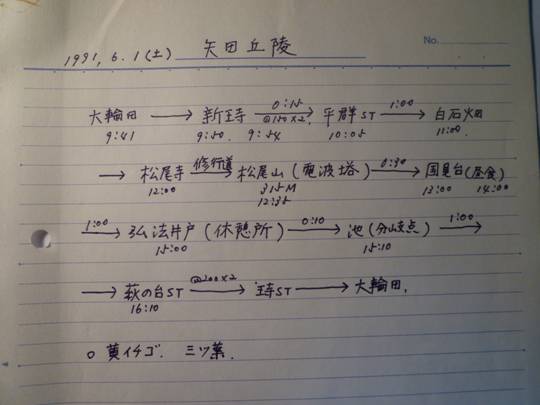 1991, 6. 1 (土) 矢田丘陵 No.
大輪田 → 新王寺 0:15 @150×2 → 平群ST 1:00 → 白石畑
9:41 9:50. 9:54 10:05 11:00.
→ 松尾寺 修行道 → 松尾山 (電波塔) 0:30 → 国見台 (昼食)
12:00 315M 13:00 14:00
12:35
1:00 → 弘法井戸 (休憩所) 0:10 → 池 (分岐点) 1:00 →
15:00 15:10
→ 萩の台ST @200×2 → 王寺ST → 大輪田.
16:10
○ 黄イチゴ. 三ツ葉.